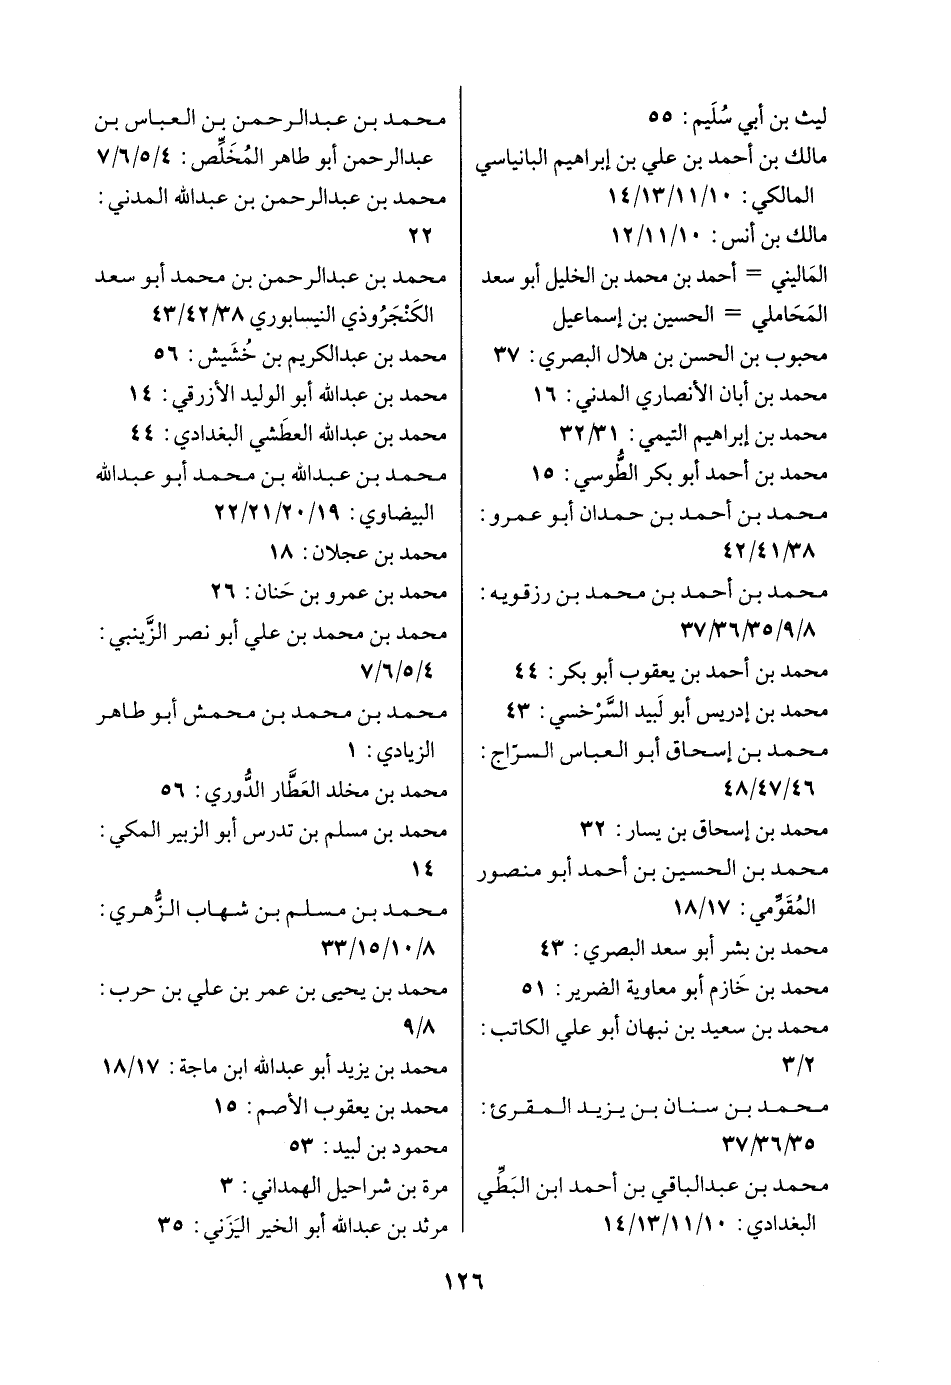 ليث بن أبي سُلَيم: ٥٥
مالك بن أحمد بن علي بن إبراهيم البانياسي
المالكي: ١٤/١٣/١١/١٠
مالك بن أنس: ١٢/١١/١٠
المَاليني = أحمد بن محمد بن الخليل أبو سعد
المَحَاملي = الحسين بن إسماعيل
محبوب بن الحسن بن هلال البصري: ٣٧
محمد بن أبان الأنصاري المدني: ١٦
محمد بن إبراهيم التيمي: ٣٢/٣١
محمد بن أحمد أبو بكر الطُّوسي: ١٥
محمد بن أحمد بن حمدان أبو عمرو:
٤٢/٤١/٣٨
محمد بن أحمد بن محمد بن رزقويه:
٣٧/٣٦/٣٥/٩/٨
محمد بن أحمد بن يعقوب أبو بكر: ٤٤
محمد بن إدريس أبو لَبيد السَّرْخسي: ٤٣
محمد بن إسحاق أبو العباس السرّاج:
٤٨/٤٧/٤٦
محمد بن إسحاق بن يسار: ٣٢
محمد بن الحسين بن أحمد أبو منصور
المُقَوِّمي: ١٨/١٧
محمد بن بشر أبو سعد البصري: ٤٣
محمد بن خَازم أبو معاوية الضرير: ٥١
محمد بن سعيد بن نبهان أبو علي الكاتب:
٣/٢
محمد بن سنان بن يزيد المقرئ:
٣٧/٣٦/٣٥
محمد بن عبدالباقي بن أحمد ابن البَطِّي
البغدادي: ١٤/١٣/١١/١٠
محمد بن عبدالرحمن بن العباس بن
عبدالرحمن أبو طاهر المُخَلِّص: ٧/٦/٥/٤
محمد بن عبدالرحمن بن عبدالله المدني:
٢٢
محمد بن عبدالرحمن بن محمد أبو سعد
الكَنْجَرُوذي النيسابوري ٤٣/٤٢/٣٨
محمد بن عبدالكريم بن خُشَيش: ٥٦
محمد بن عبدالله أبو الوليد الأزرقي: ١٤
محمد بن عبدالله العطَشي البغدادي: ٤٤
محمد بن عبدالله بن محمد أبو عبدالله
البيضاوي: ٢٢/٢١/٢٠/١٩
محمد بن عجلان: ١٨
محمد بن عمرو بن حَنان: ٢٦
محمد بن محمد بن علي أبو نصر الزَّينبي:
٧/٦/٥/٤
محمد بن محمد بن محمش أبو طاهر
الزيادي: ١
محمد بن مخلد العَطَّار الدُّوري: ٥٦
محمد بن مسلم بن تدرس أبو الزبير المكي:
١٤
محمد بن مسلم بن شهاب الزُّهري:
٣٣/١٥/١٠/٨
محمد بن يحيى بن عمر بن علي بن حرب:
٩/٨
محمد بن يزيد أبو عبدالله ابن ماجة: ١٨/١٧
محمد بن يعقوب الأصم: ١٥
محمود بن لبيد: ٥٣
مرة بن شراحيل الهمداني: ٣
مرثد بن عبدالله أبو الخير اليَزَني: ٣٥
١٢٦